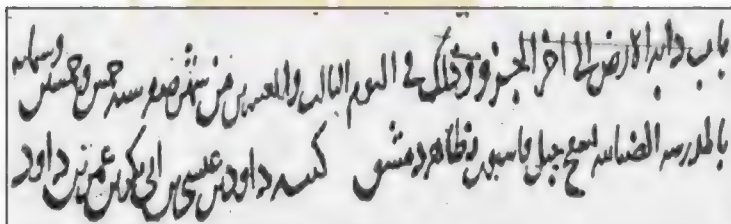 باب دابة الارض الى اخر الجزء وذلك في اليوم الثالث والعشرين من شهر صفر سنة خمس وخمسين وستمائة
بالمدرسة الضيائية بسفح جبل قاسيون بظاهر دمشق كتبه داود بن عيسى بن ابي بكر بن عمر بن داود